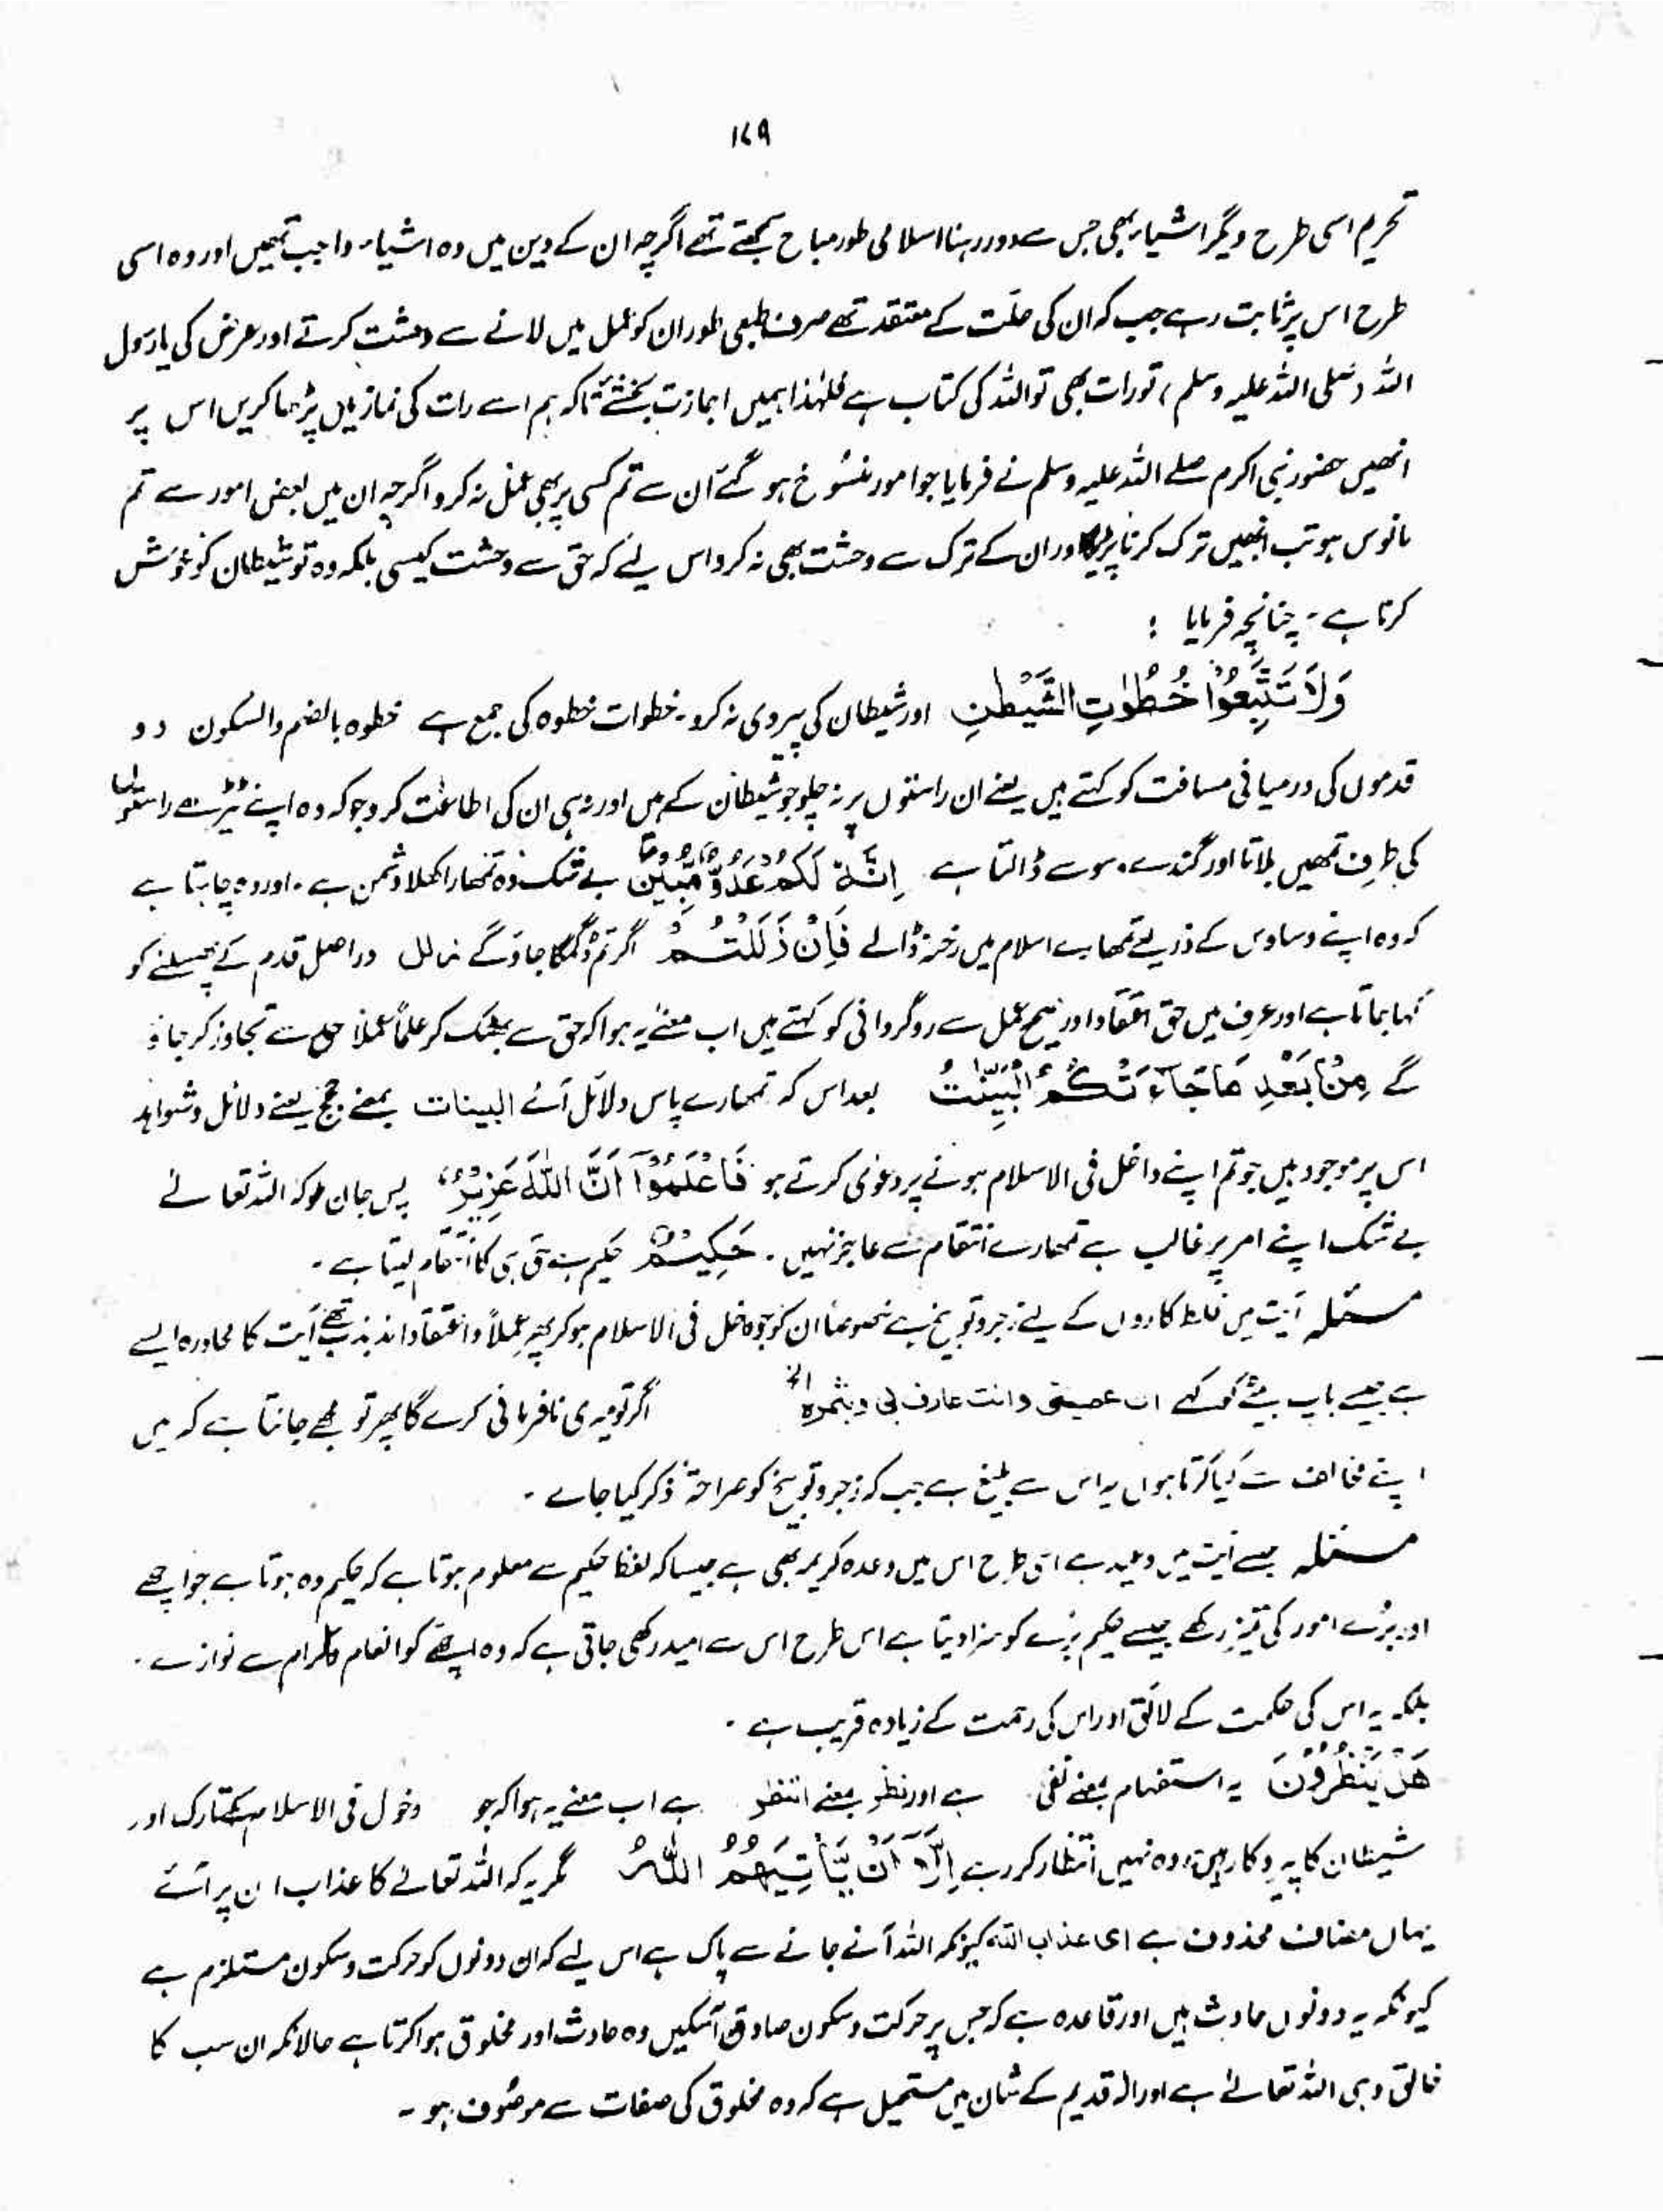 ۱۷۹
تحریم اسی طرح دیگر اشیاء بھی جس سے دور رہنا اسلامی طور مباح سمجھتے تھے اگرچہ ان کے دین میں وہ اشیاء واجب تھیں اور وہ اسی
طرح اس پر ثابت رہے جب کہ ان کی حلّت کے معتقد تھے صرف طبعی طور ان کو عمل میں لانے سے وحشت کرتے اور عرض کی یا رسول
اللہ (صلی اللہ علیہ وسلم) تورات بھی تو اللہ کی کتاب ہے فلہٰذا ہمیں اجازت بخشئے تاکہ ہم اسے رات کی نماز میں پڑھا کریں اس پر
انھیں حضور نبی اکرم صلے اللہ علیہ وسلم نے فرمایا جو امور منسُوخ ہو گئے ان سے تم کسی پر بھی عمل نہ کرو اگرچہ ان میں بعض امور سے تم
مانوس ہو تب انھیں ترک کرنا پڑیگا اور ان کے ترک سے وحشت بھی نہ کرو اس لئے کہ حق سے وحشت کیسی بلکہ وہ تو شیطان کو خوش
کرتا ہے۔ چنانچہ فرمایا :
وَلَا تَتَّبِعُوْا خُطُوٰتِ الشَّیْطٰنِ اور شیطان کی پیروی نہ کرو۔ خطوات خطوہ کی جمع ہے خطوہ بالضم والسکون دو
قدموں کی درمیانی مسافت کو کہتے ہیں یعنے ان راستوں پر نہ چلو جو شیطان کے ہیں اور نہ ہی ان کی اطاعت کرو جو کہ وہ اپنے ٹیڑھے راستوں
کی طرف تمھیں بلاتا اور گندے وسوسے ڈالتا ہے اِنَّہٗ لَکُمْ عَدُوٌّ مُّبِیْنٌ بے شک وہ تمھارا کھلا دشمن ہے۔ اور وہ چاہتا ہے
کہ وہ اپنے وساوس کے ذریعے تمھارے اسلام میں رخنہ ڈالے فَاِنْ زَلَلْتُمْ اگر تم ڈگمگا جاؤ گے زلل دراصل قدم کے پھسلنے کو
کہا جاتا ہے اور عرف میں حق اعتقاد اور صحیح عمل سے روگردانی کو کہتے ہیں اب معنےٰ یہ ہوا کہ حق سے بھٹک کر علماً عملاً حق سے تجاوز کر جاؤ
گے مِنْۢ بَعْدِ مَا جَآءَتْکُمُ الْبَیِّنٰتُ بعد اس کہ تمھارے پاس دلائل آئے البینات بمعنے حجج یعنے دلائل و شواہد
اس پر موجود ہیں جو تم اپنے داخل فی الاسلام ہونے پر دعوٰی کرتے ہو فَاعْلَمُوْٓا اَنَّ اللّٰہَ عَزِیْزٌ پس جان لو کہ اللہ تعالےٰ
بے شک اپنے امر پر غالب ہے تمھارے انتقام سے عاجز نہیں۔ حَکِیْمٌ حکیم ہے حق ہی کا انتقام لیتا ہے۔
مسئلہ آیت میں غلط کاروں کے لیے زجر و توبیخ ہے خصوصاً ان کو جو داخل فی الاسلام ہو کر پھر عملاً و اعتقاداً مذبذب تھے آیت کا محاورہ ایسے
ہے جیسے باپ بیٹے کو کہے ان عصیتنی وانت عارف بی الخ اگر تو میری نافرمانی کرے گا پھر تو مجھے جانتا ہے کہ میں
اپنے مخالف سے کیا کرتا ہوں یہ اس سے بلیغ ہے جب کہ زجر و توبیخ کو صراحۃً ذکر کیا جاے۔
مسئلہ جیسے آیت میں وعید ہے اسی طرح اس میں وعدہ کریمہ بھی ہے جیسا کہ لفظ حکیم سے معلوم ہوتا ہے کہ حکیم وہ ہوتا ہے جو اچھے
اور بُرے امور کی تمیز رکھے جیسے حکیم بُرے کو سزا دیتا ہے اس طرح اس سے امید رکھی جاتی ہے کہ وہ اچھے کو انعام و اکرام سے نوازے۔
بلکہ یہ اس کی حکمت کے لائق اور اس کی رحمت کے زیادہ قریب ہے۔
ھَلْ یَنْظُرُوْنَ یہ استفہام بمعنے نفی ہے اور نظر بمعنے انتظر ہے اب معنے یہ ہوا کہ جو دخول فی الاسلام کے تارک اور
شیطان کا پیروکار ہیں وہ نہیں انتظار کر رہے اِلَّآ اَنْ یَّاْتِیَھُمُ اللّٰہُ مگر یہ کہ اللہ تعالےٰ کا عذاب ان پر آئے
یہاں مضاف محذوف ہے ای عذاب اللہ کیونکہ اللہ آنے جانے سے پاک ہے اس لیے کہ ان دونوں کو حرکت و سکون مستلزم ہے
کیونکہ یہ دونوں حادث ہیں اور قاعدہ ہے کہ جس پر حرکت و سکون صادق آسکیں وہ حادث اور مخلوق ہوا کرتا ہے حالانکہ ان سب کا
خالق وہی اللہ تعالےٰ ہے اور الٰہ قدیم کے شان میں مستحیل ہے کہ وہ مخلوق کی صفات سے موصُوف ہو۔